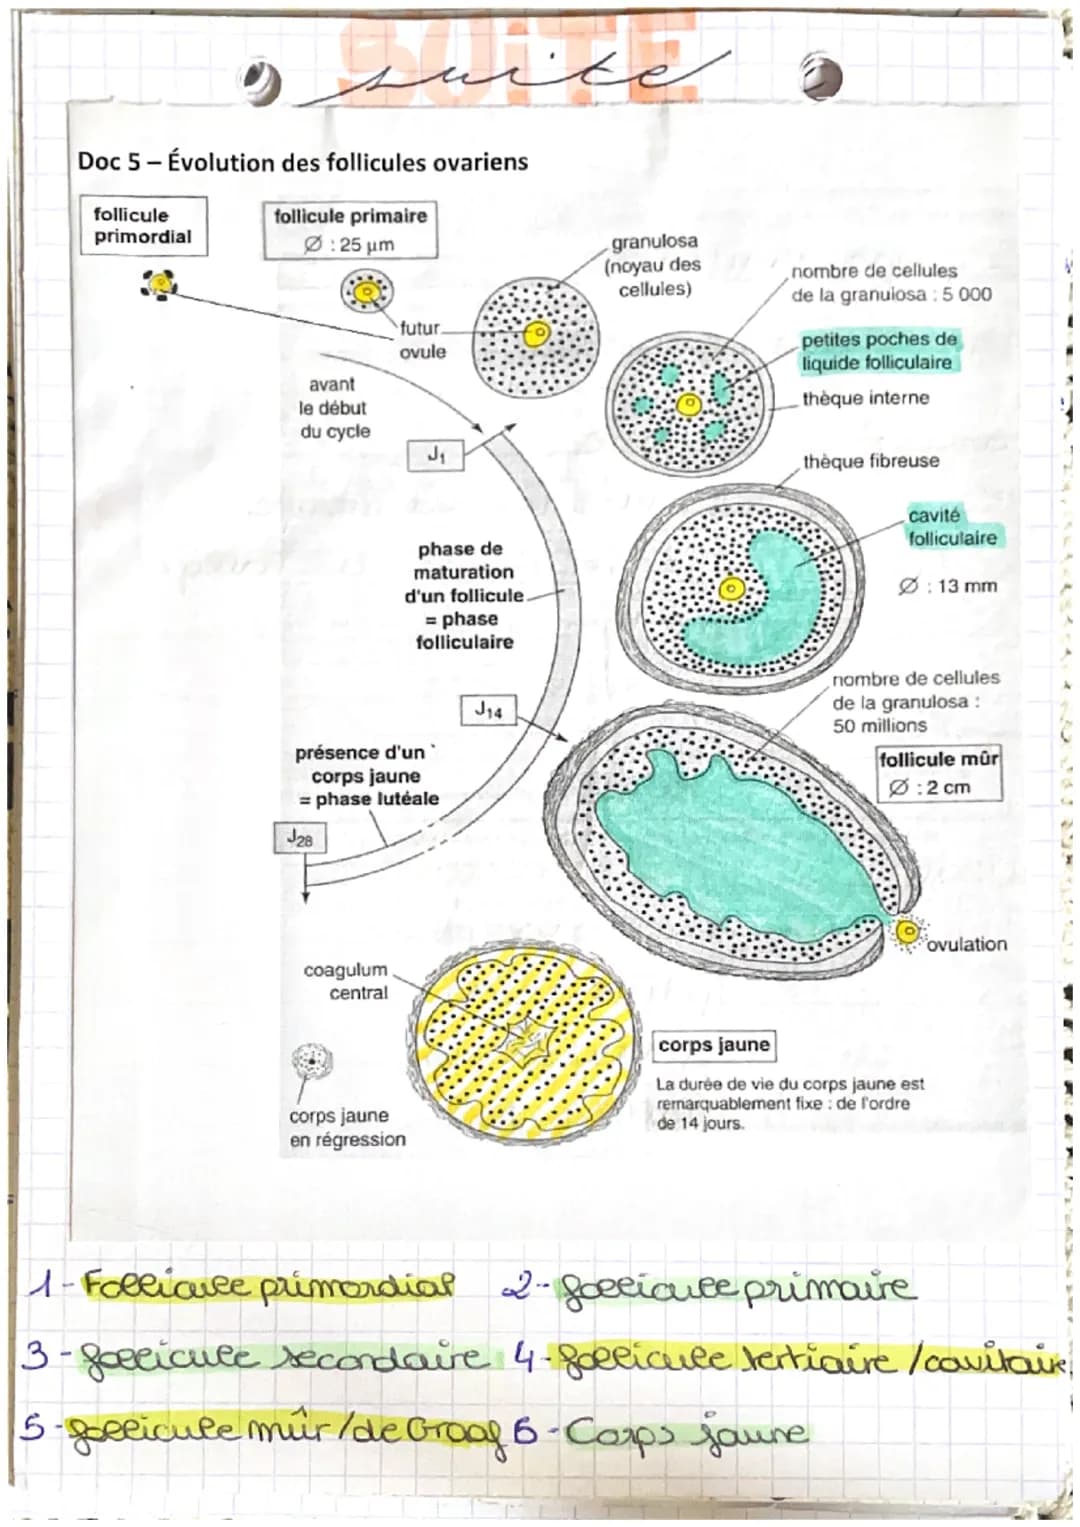 SUiTE
suite
Doc 5 – Évolution des follicules ovariens
follicule
primordial
follicule primaire
Ø : 25 µm
granulosa
(noyau des
cellules)
nombre de cellules
de la granulosa : 5 000
futur
ovule
petites poches de
liquide folliculaire
thèque interne
avant
le début
du cycle
J1
thèque fibreuse
cavité
folliculaire
Ø : 13 mm
phase de
maturation
d'un follicule
= phase
folliculaire
nombre de cellules
de la granulosa :
50 millions
J14
follicule mûr
Ø : 2 cm
présence d'un
corps jaune
= phase lutéale
J28
ovulation
coagulum
central
corps jaune
La durée de vie du corps jaune est
remarquablement fixe : de l'ordre
de 14 jours.
corps jaune
en régression
1 - Follicule primordial 2 - follicule primaire
3 - follicule secondaire 4 - follicule tertiaire / cavitaire
5 - follicule mûr / de Graaf 6 - Corps jaune